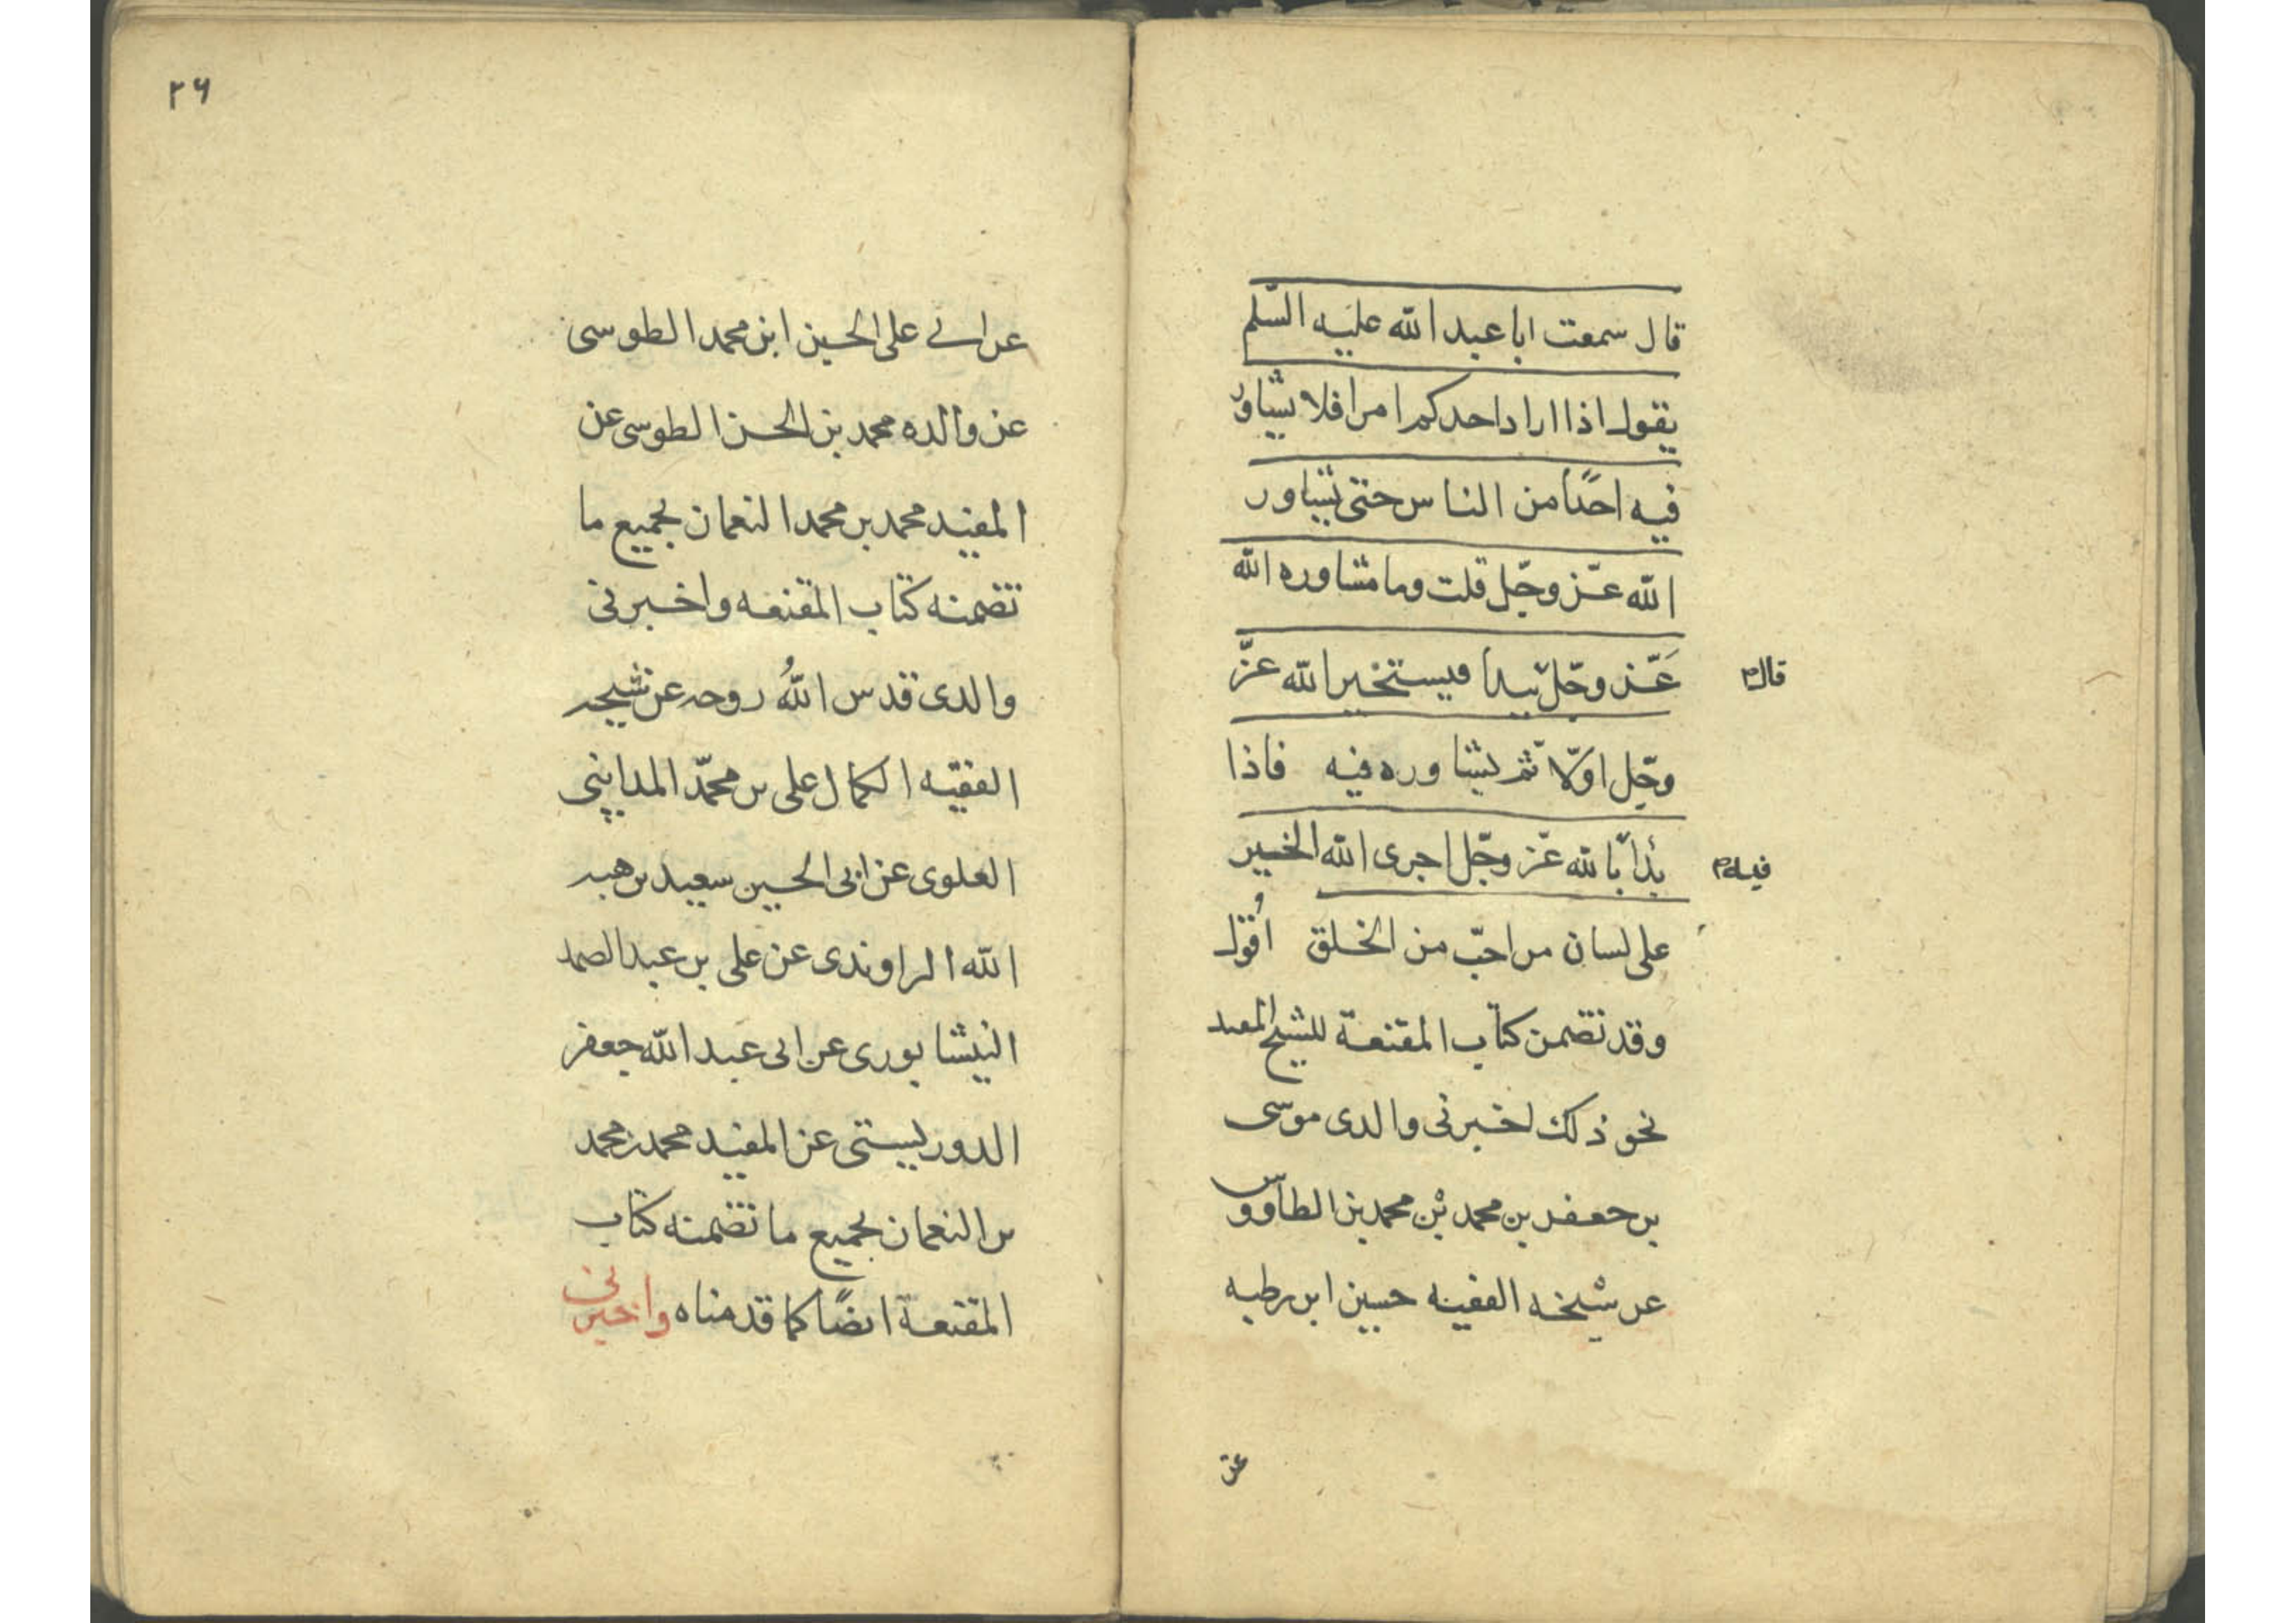 قال سمعت ابا عبد الله عليه السّلم
يقول اذا اراد احدكم امرا فلا يشاور
فيه احدًا من الناس حتى يشاور
الله عزّ وجّل قلت وما مشاوره الله
قال
عَزّ وجّل يبدأ فيستخير الله عزّ
وجّل اوّلا ثم يشاوره فيه فاذا
فيه
بدأ بالله عزّ وجّل اجرى الله الخير
على لسان من احبّ من الخلق اقول
وقد تضمن كتاب المقنعة للشيخ المفيد
نحو ذلك اخبرنى والدى موسى
بن جعفر بن محمد بن محمد بن الطاووس
عن شيخه الفقيه حسين ابن رطبه
عن
٢٦
عن ابي على الحسين ابن محمد الطوسى
عن والده محمد بن الحسن الطوسى عن
المفيد محمد بن محمد النعمان بجميع ما
تضمنه كتاب المقنعه واخبرنى
والدى قدس اللهُ روحه عن شيخه
الفقيه الكمال على بن محمّد المدايني
العلوى عن ابى الحسين سعيد بن هبه
الله الراوندى عن على بن عبد الصمد
النيشابورى عن ابى عبد الله جعفر
الدوريستى عن المفيد محمد بن محمد
بن النعمان بجميع ما تضمنه كتاب
المقنعة ايضًا كما قدمناه واخبرنى